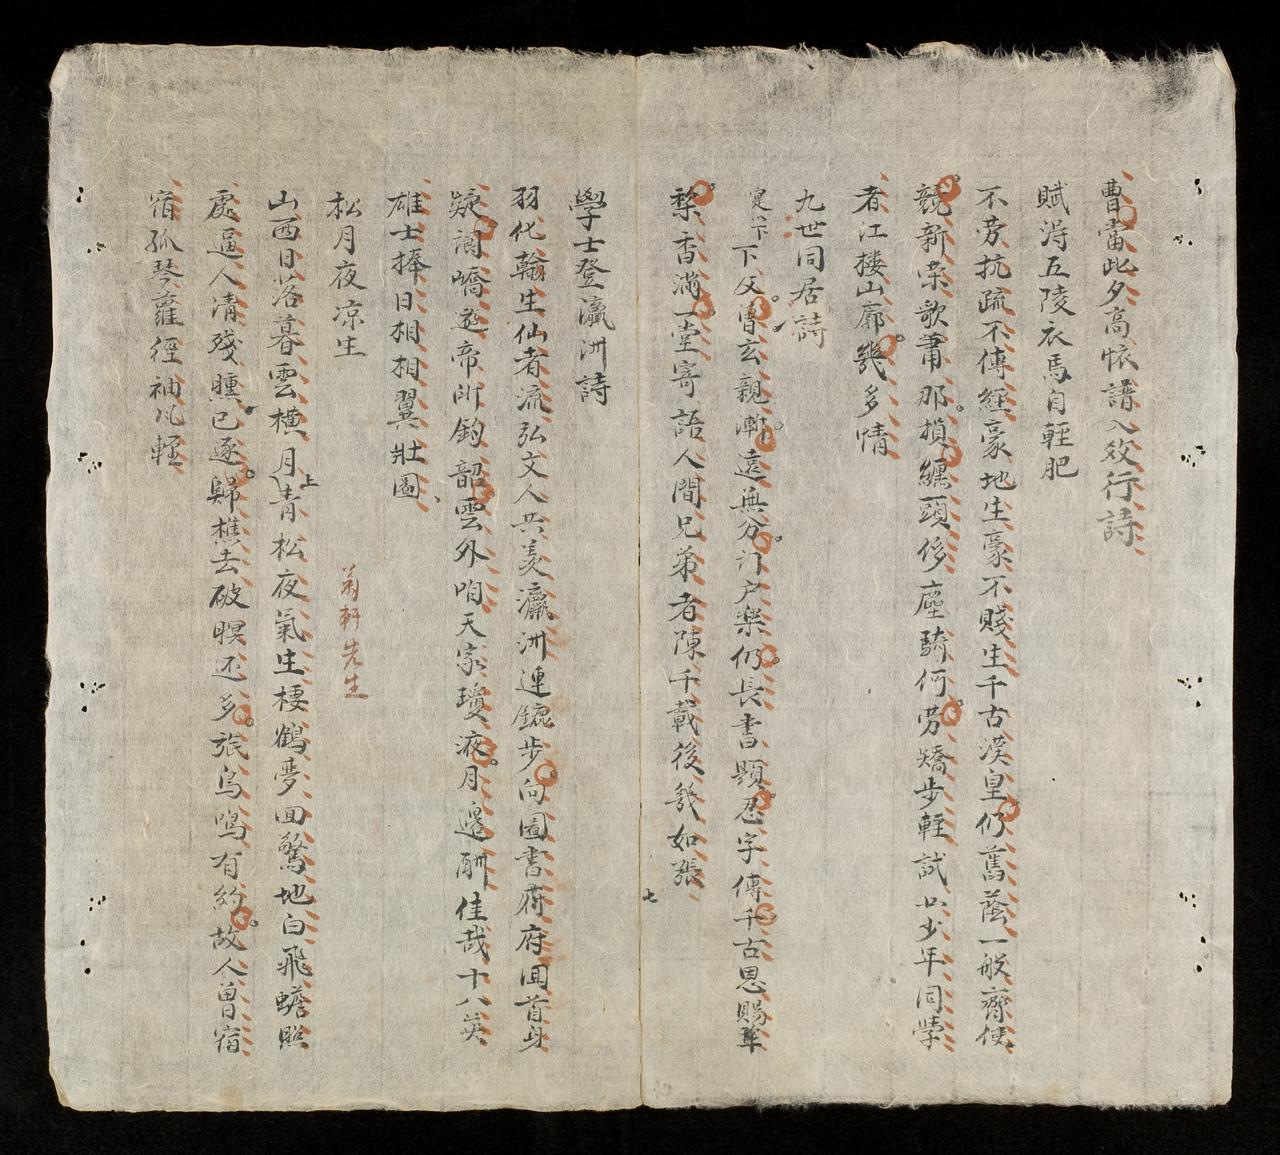 曹當此夕高懷譜入效行詩
賦淂五陵衣馬自輕肥
不劳抗疏不傳經豪地生豪不賤生千古漢皇仍舊蔭一般齊使
競新榮歌蕭那損纏頭侈塵騎何劳矯步輕試少年同學
者江楼山廓幾多情
九世同居詩
下父曺玄親漸遠無分门户樂仍長書題忍字傳千古恩賜
黎香滿一堂寄語人間兄弟者陳千載後幾如張
七
學士登瀛洲詩
羽化翰生仙者流弘文人共羨瀛洲連鑣步向圖書府回首身
疑閬嶠遊帝所鈞韶雲外咱天家瓊液月邊酬佳哉十八英
雄士捧日相相翼壯圖
松月夜凉生
菊軒先生
山西日落暮雲橫月上青松夜氣生棲鶴夢回驚地白飛蟾照
處逼人清殘曛已逐歸樵去破暝还多旅鳥鳴有約故人曾宿
宿孤琴蘿徑袖风輕